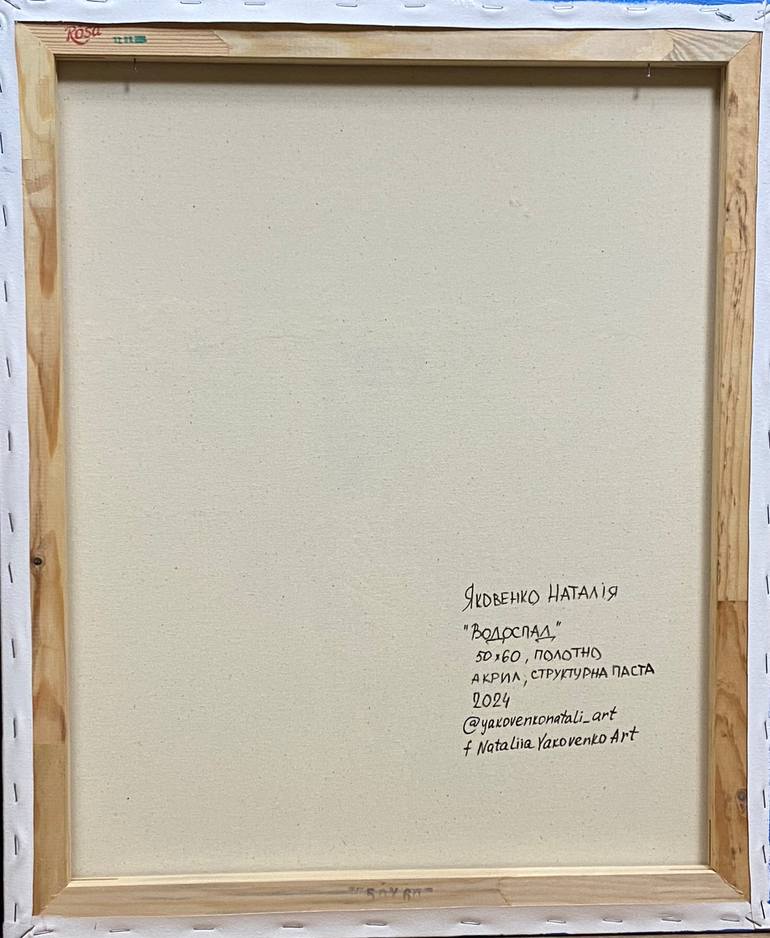 Rosa
Яковенко Наталія
"Водоспад"
50x60, полотно
акрил, структурна паста
2024
@yakovenkonatali_art
f Nataliia Yakovenko Art
50x60